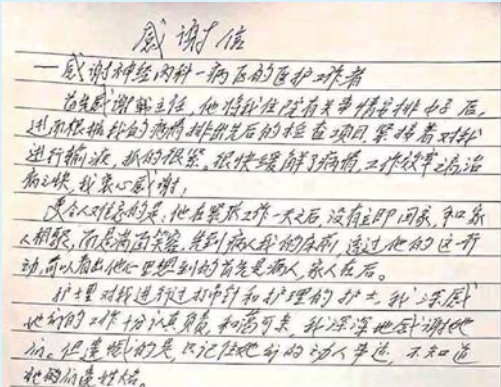 感谢信
——感谢神经内科一病区的医护工作者
首先感谢戴主任，他将我住院有关事情安排好后，
进而根据我的病情排出先后的检查项目，紧接着对我
进行输液，抓的很紧。很快缓解了病情，工作效率之高，治
病之快，我衷心感谢；
更令人难忘的是：他在紧张工作一天之后，没有立即回家，和家
人相聚，而是满面笑容，先到病人我的床前，透过他的这一行
动，可以看出他心里想到的首先是病人，家人在后。
护士里对我进行过打吊针和护理的护士，我深感
她们的工作十分认真负责，和蔼可亲，我深深地感谢她
们。但遗憾的是，只记住她们的动人事迹，不知道
她们的尊姓大名。